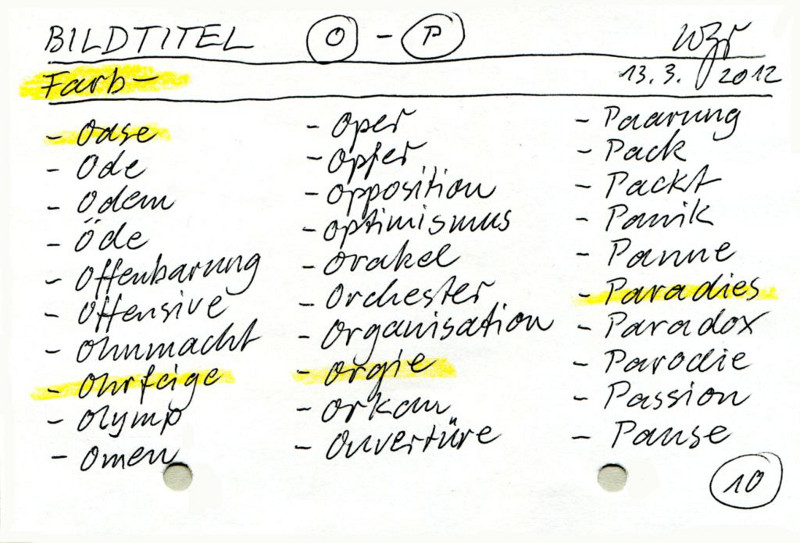 BILDTITEL O - P
Farb- 13.3. 2012
- Oase
- Ode
- Odem
- Öde
- Offenbarung
- Offensive
- Ohnmacht
- Ohrfeige
- Olymp
- Omen
- Oper
- Opfer
- Opposition
- Optimismus
- Orakel
- Orchester
- Organisation
- Orgie
- Orkan
- Ouvertüre
- Paarung
- Pack
- Packt
- Panik
- Panne
- Paradies
- Paradox
- Parodie
- Passion
- Pause
10